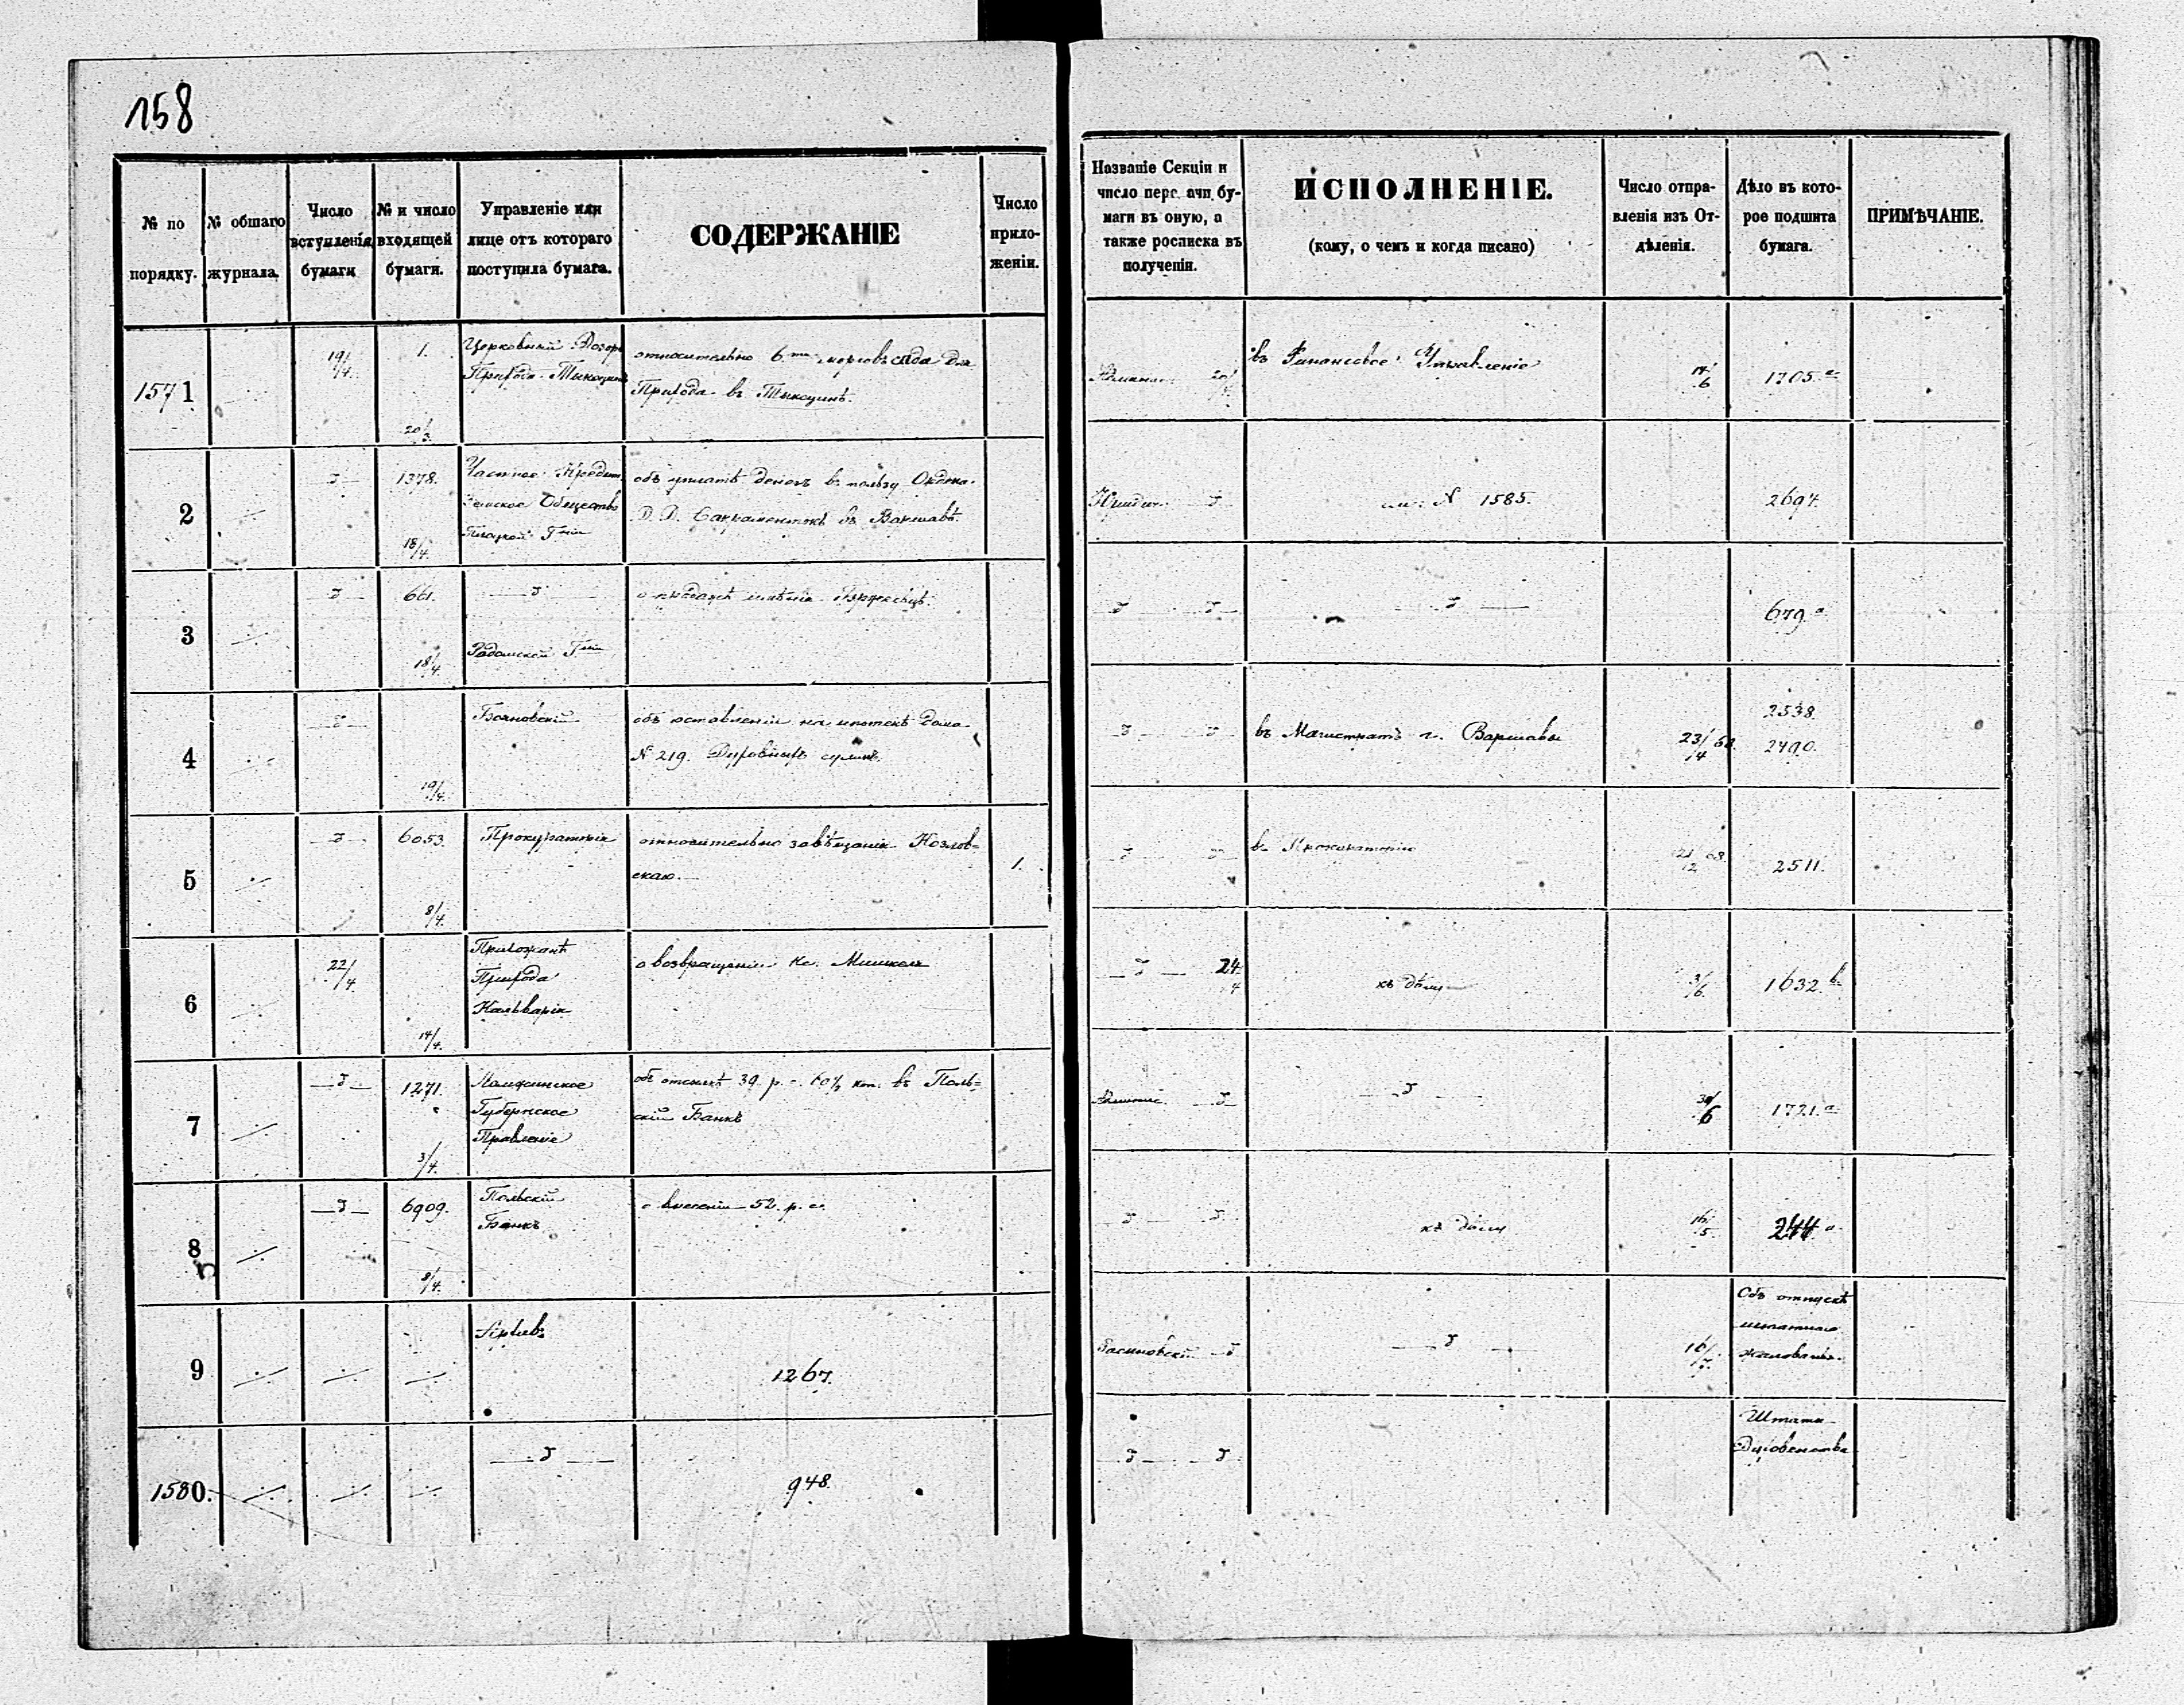 158
№ по порядку.
№ общаго журнала.
Число вступленія бумаги
№ и число входящей бумаги.
Управленіе или лице отъ котораго поступила бумага.
СОДЕРЖАНІЕ
Число приложеніи.
Названіе Секціи и число перед ачи бумаги въ оную, а также росписка въ полученіи.
ИСПОЛНЕНІЕ.
(кому, о чемъ и когда писано)
Число отправленія изъ Отдѣленія.
Дѣло въ которое подшита бумага.
ПРИМѢЧАНІЕ.
1571
19/4
1.
20/3.
Церковный Дозоръ
Прихода Тыкоцинъ
относительно 6ти морговъ сада для
Прихода въ Тыкоцинѣ.
въ Финансовое Управленіе
14/6
1705.а
2
1378.
18/4.
Частное Кредит.
Земское Общество
Плоцкой Гніи
объ уплатѣ денегъ въ пользу
Д. Д. Сакраментокъ въ Варшавѣ.
Юридич.
см. N 1585.
2694.
3
661.
18/4
Радомской Гніи
о продажѣ имѣнія
679.а
4
19/4.
Бояновскій
объ оставленіи на ипотекѣ дома
N 219. Духовныхъ суммъ.
въ Магистратъ г. Варшавы
23/4 68.
2538.
2490.
5
6053.
8/4.
Прокураторія
относительно завѣщанія Козлов=
скаго.
1.
въ Прокураторію
2511.
6
22/4
14/4.
Прихожанѣ
Прихода
Кальварія
о возвращеніи Кс.
24/4
къ дѣлу
3/6.
1632.в
7
1271.
3/4.
Ломжинское
Губернское
Правленіе
объ отсылкѣ 39 р. 60½ коп. въ Поль=
скій Банкъ
30/6
1721.а
8
6909.
8/4.
Польскій
Банкъ
о внесеніи 52 р. с.
къ дѣлу
16/5
244 а
9
Архивъ
1267.
16/7.
Объ отпускѣ
штатнаго
жалованья.
1580.
948.
Штаты
Духовенства